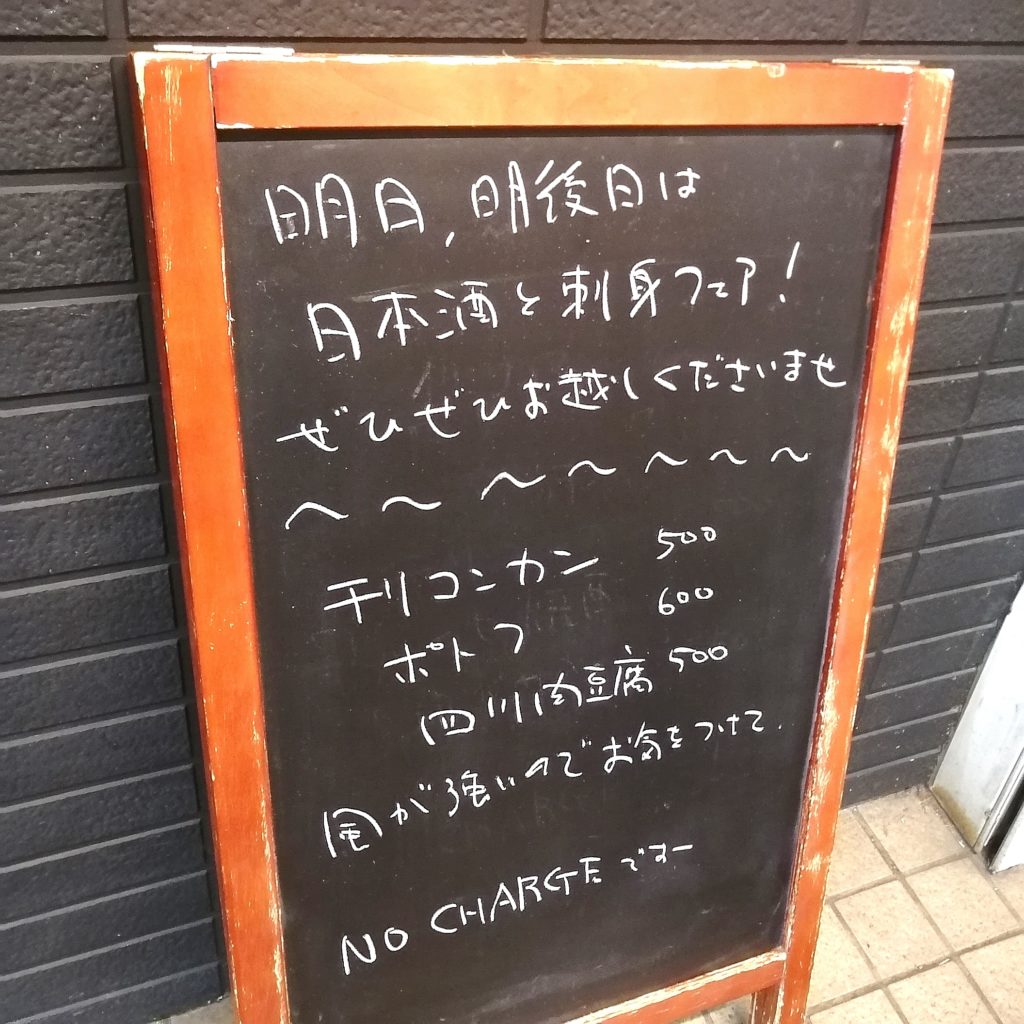 明日，明後日は
日本酒と刺身フェア！
ぜひぜひお越しくださいませ
〜〜〜〜〜〜〜
チリコンカン 500
ポトフ 600
四川肉豆腐 500
風が強いのでお気をつけて.
NO CHARGEですー